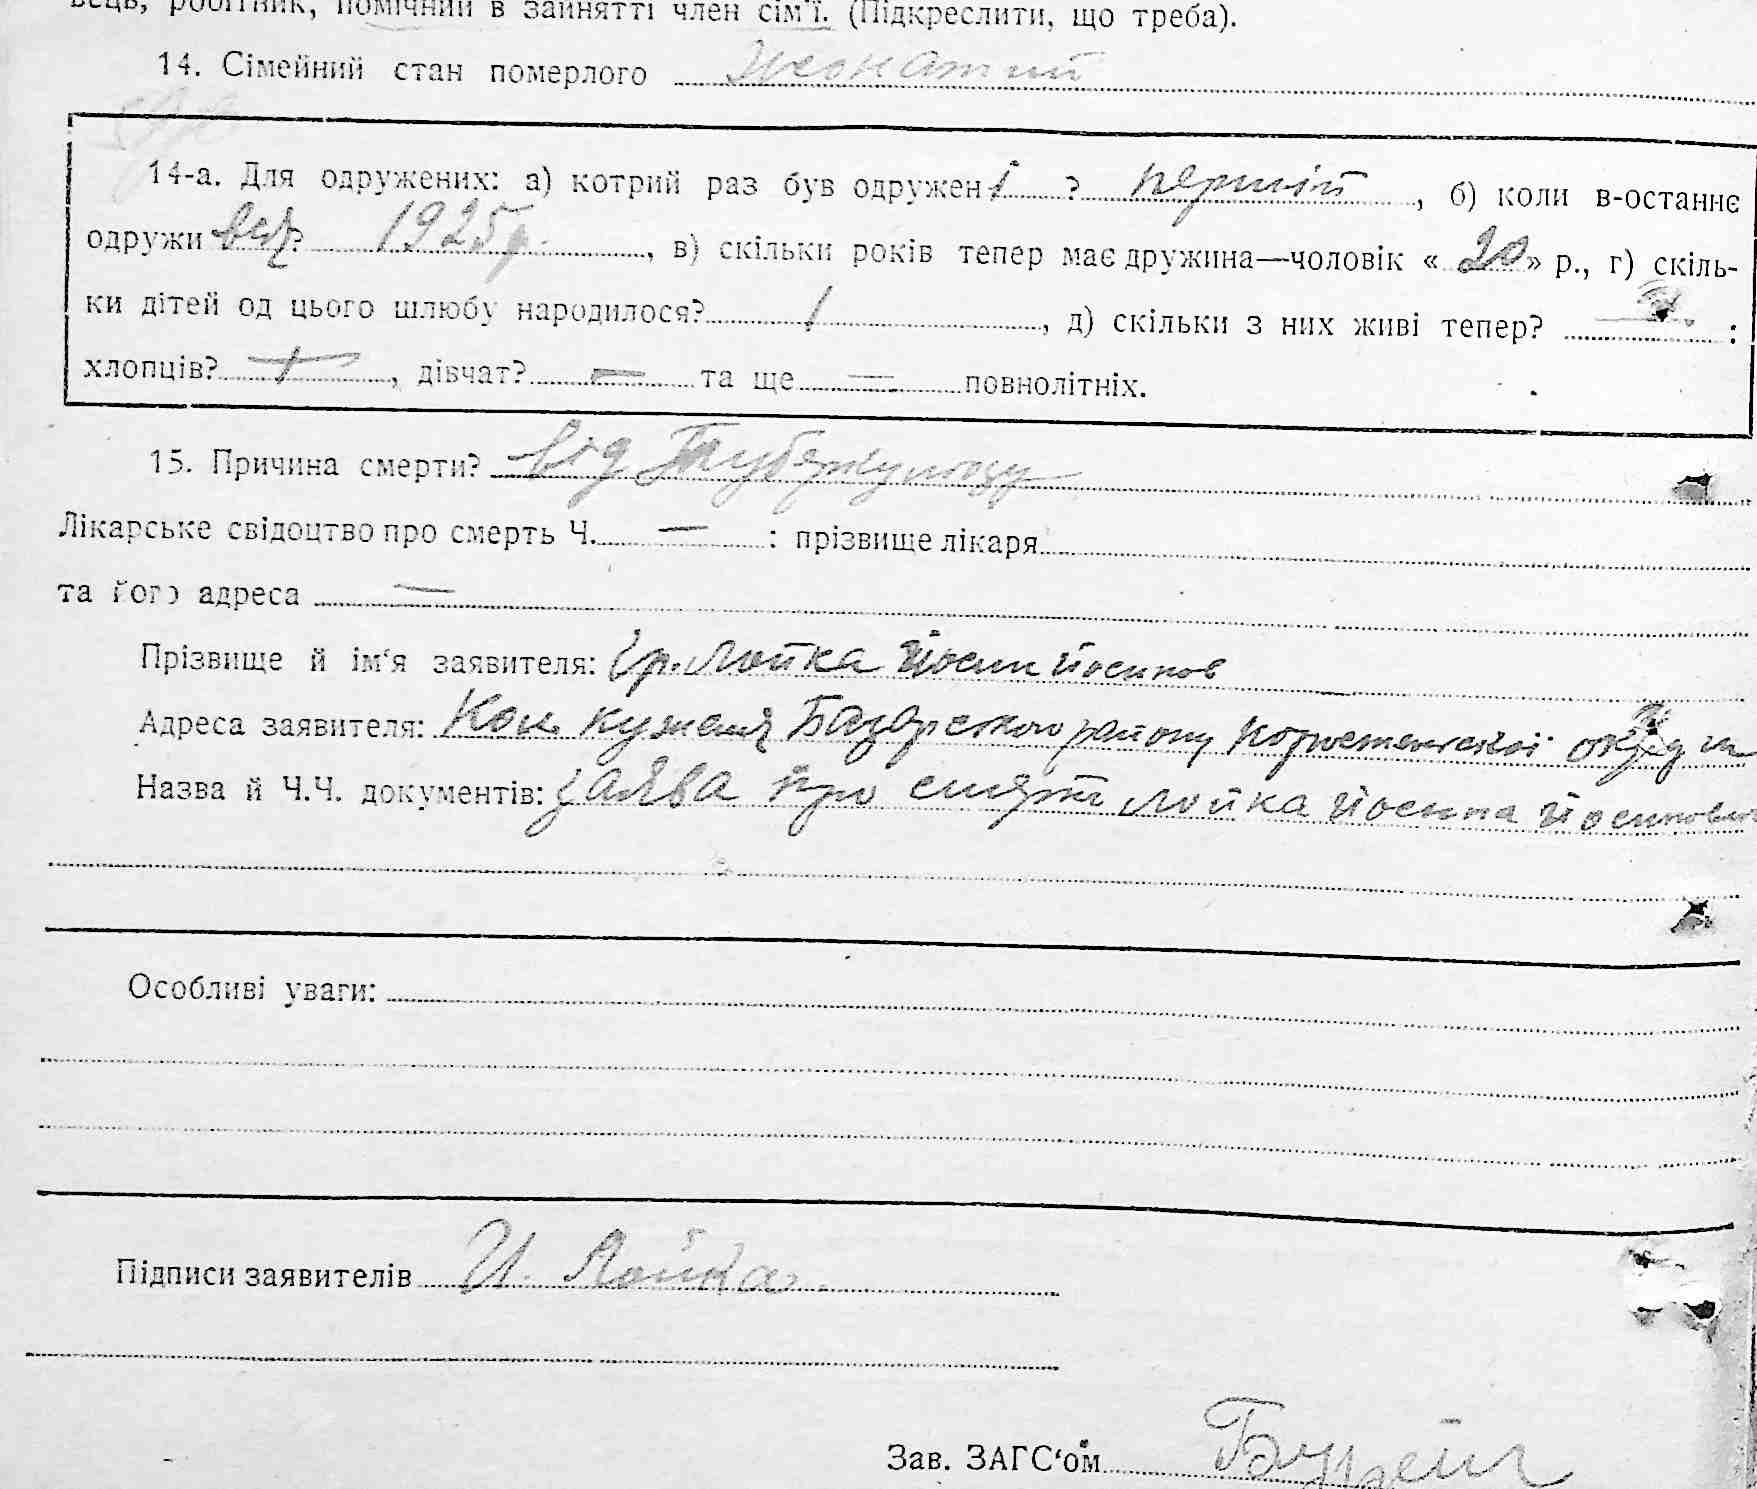 вець, робітник, помічний в зайнятті член сім'ї. (Підкреслити, що треба).
14. Сімейний стан померлого жонатий
14-а. Для одружених: а) котрий раз був одружені? першій, б) коли в-останнє
одруживсь? 1925 р., в) скільки років тепер має дружина—чоловік «20» р., г) скіль-
ки дітей од цього шлюбу народилося? 1, д) скільки з них живі тепер? :
хлопців? , дівчат? — та ще = повнолітніх.
15. Причина смерти? від Туберкульозу
Лікарське свідоцтво про смерть Ч. — : прізвище лікаря
та його адреса —
Прізвище й ім'я заявителя: гр. Лойка Йосип Йосипов
Адреса заявителя: Кол. Базарського району Коростенської округи
Назва й Ч.Ч. документів: заява про смерть Лойка Йосипа Йосипович
Особливі уваги:
Підписи заявителів И. Лойка
Зав. ЗАГС'ом